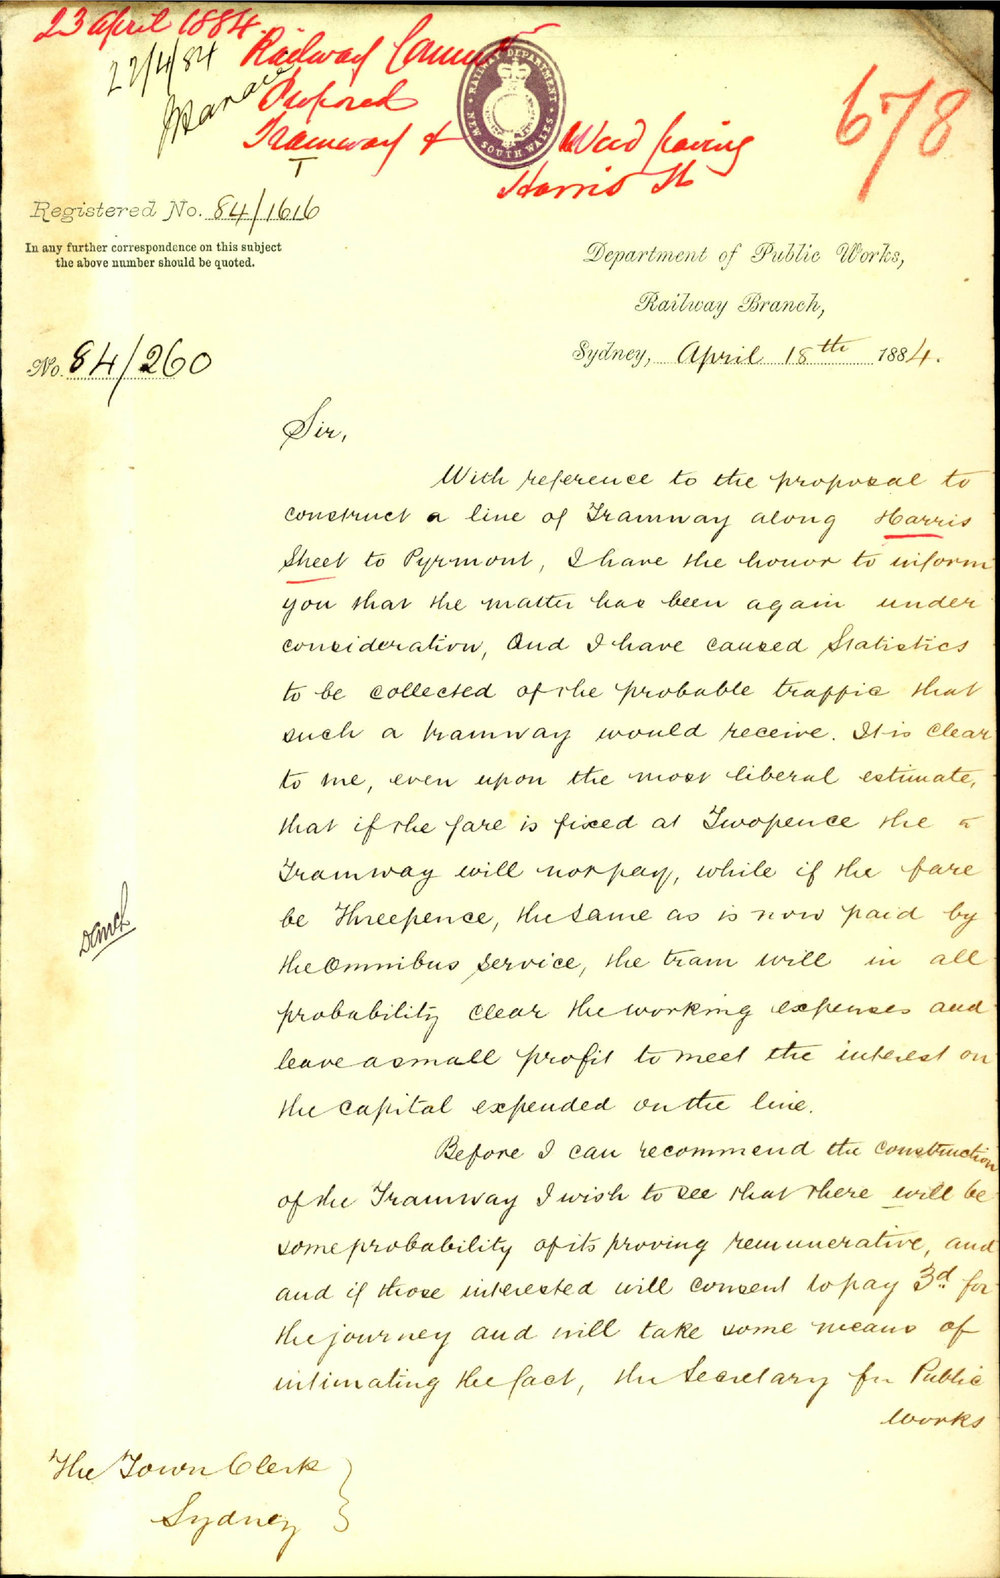 23 April 1884.
22/4/84
Railway Commr
Proposed
Tramway & Wood paving
Harris St
678
RAILWAY DEPARTMENT
NEW SOUTH WALES
Registered No. 84/1616
In any further correspondence on this subject
the above number should be quoted.
Department of Public Works,
Railway Branch,
Sydney, April 18th 1884.
No. 84/260
Sir,
With reference to the proposal to
construct a line of Tramway along Harris
Street to Pyrmont, I have the honor to inform
you that the matter has been again under
consideration, and I have caused Statistics
to be collected of the probable traffic that
such a tramway would receive. It is clear
to me, even upon the most liberal estimate,
that if the fare is fixed at Twopence the
Tramway will not pay, while if the fare
be Threepence, the same as is now paid by
the Omnibus service, the tram will in all
probability clear the working expenses and
leave a small profit to meet the interest on
the capital expended on the line.
Before I can recommend the construction
of the Tramway I wish to see that there will be
some probability of its proving remunerative, and
and if those interested will consent to pay 3d for
the journey and will take some means of
intimating the fact, the Secretary for Public
Works
The Town Clerk
Sydney